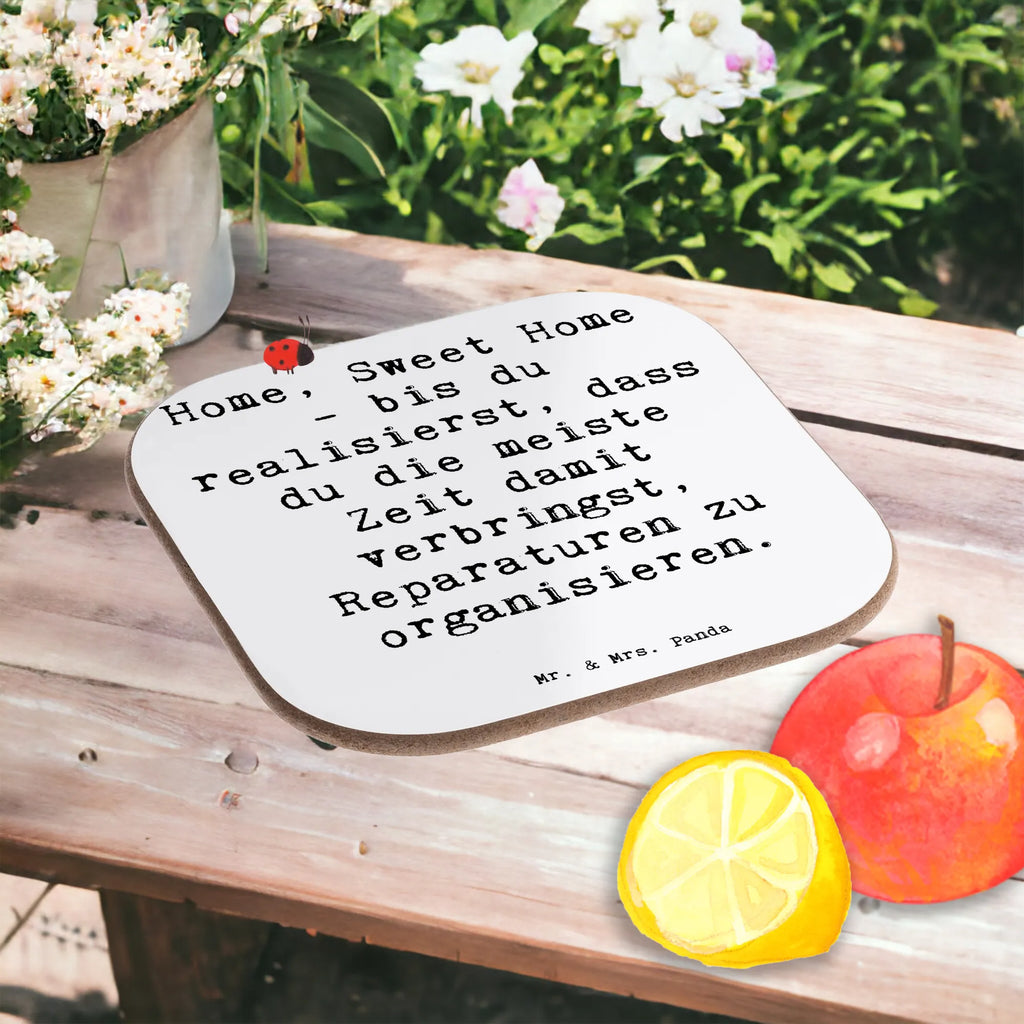 Home, Sweet Home
– bis du
realisierst, dass
du die meiste
Zeit damit
verbringst,
Reparaturen zu
organisieren.
Mr. & Mrs. Panda